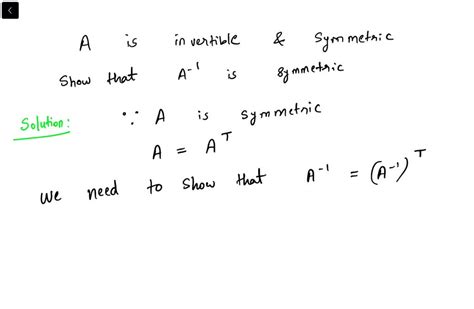 A is invertible & Symmetric
Show that A⁻¹ is symmetric
Solution: ∵ A is symmetric
A = Aᵀ
We need to show that A⁻¹ = (A⁻¹)ᵀ